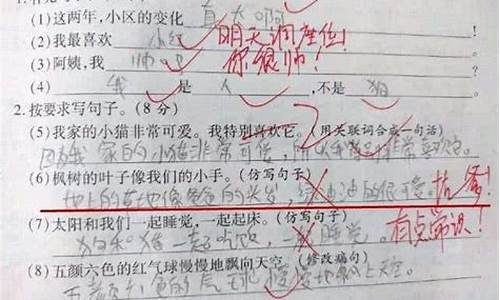 (1)这两年,小区的变化 真大啊
(2)我最喜欢 小红 明天调座位!
(3)阿姨,我 帅吧 你很帅!
(4) 我 是 人 ,不是 狗
2.按要求写句子。(8分)
(5)我家的小猫非常可爱。我特别喜欢它。(用关联词合成一句话)
因为我家的小猫非常可爱,所以我特别非常喜欢它。
(6)枫树的叶子像我们的小手。(仿写句子)
地上的草地像爸爸的头发,绿油油的很可爱。 抗争!
(7)太阳和我们一起睡觉,一起起床。(仿写句子)
狗和猪一起吃饭,一起睡觉。 有点常识!
(8)五颜六色的红气球慢慢地飘向天空。(修改病句)
五颜六色的气球慢慢地飘上天空。